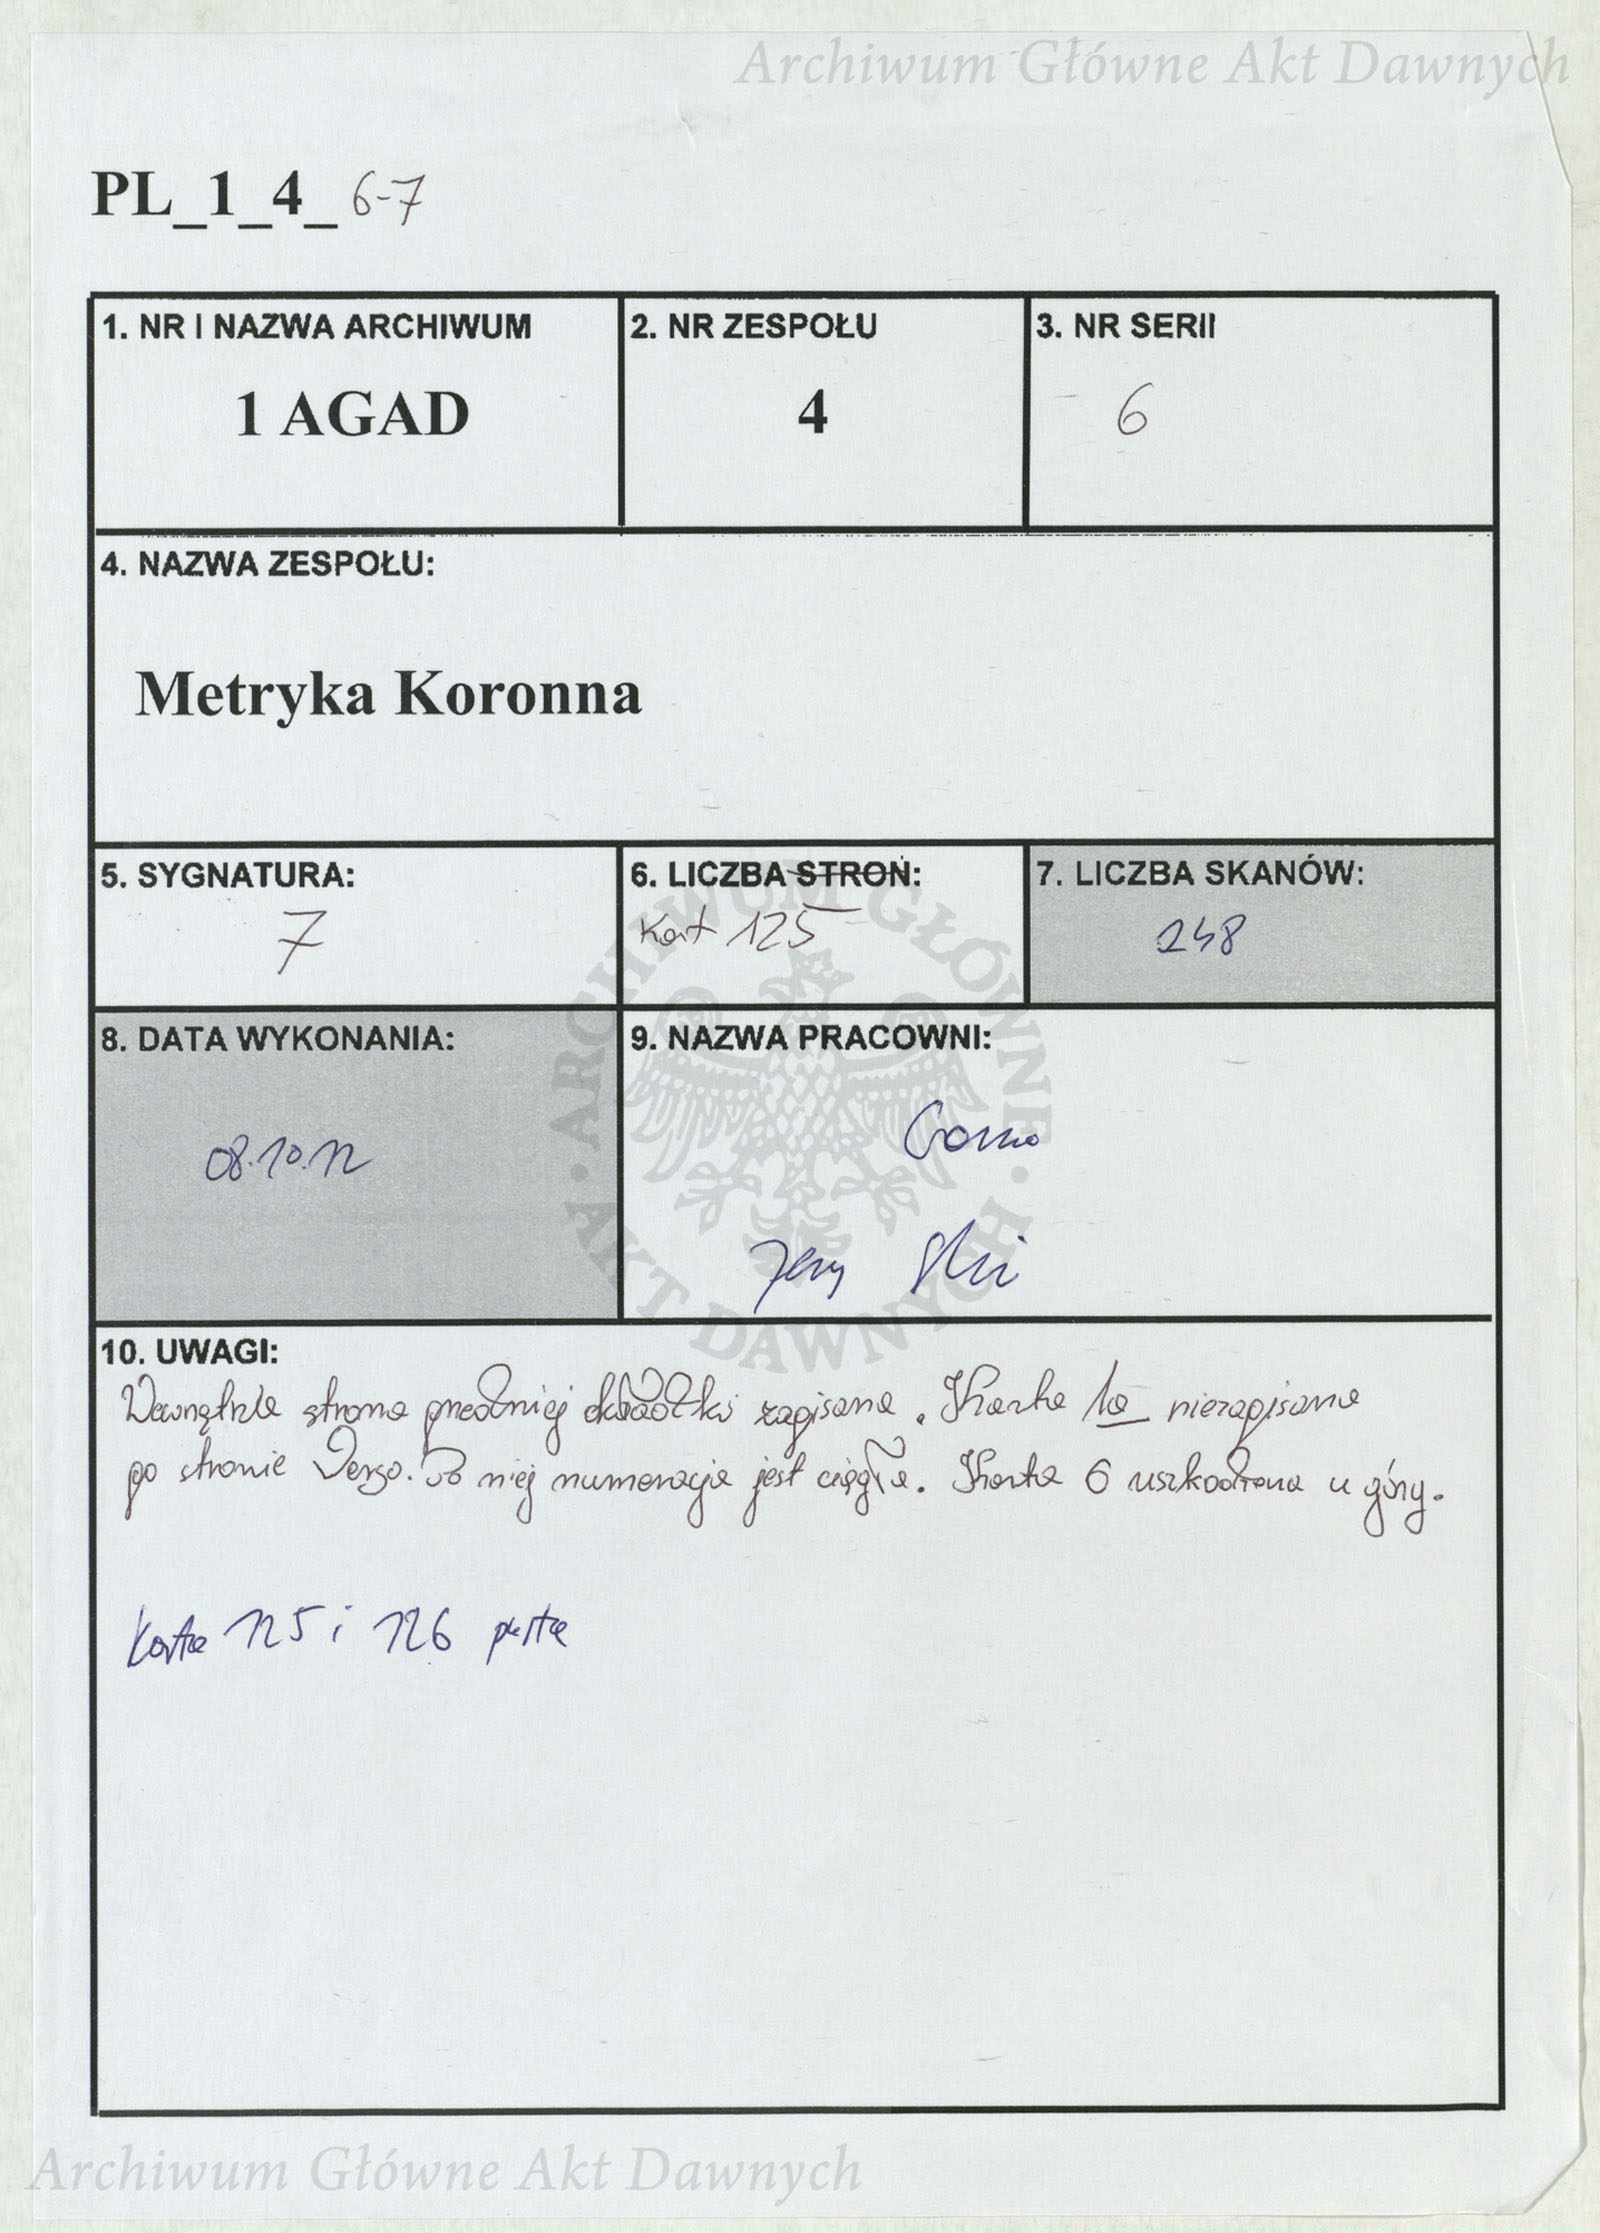 Archiwum Główne Akt Dawnych
PL_1_4_ 6-7
1. NR I NAZWA ARCHIWUM
1 AGAD
2. NR ZESPOŁU
4
3. NR SERII
6
4. NAZWA ZESPOŁU:
Metryka Koronna
5. SYGNATURA:
7
6. LICZBA STRON:
Kart 125
7. LICZBA SKANÓW:
248
8. DATA WYKONANIA:
08.10.12
9. NAZWA PRACOWNI:
Jerzy
10. UWAGI:
Wewnętrzna strona przedniej okładki zapisana. Karta 1a niezapisana
po stronie verso. Po niej numeracja jest ciągła. Karta 6 uszkodzona u góry.
Karta 125 i 126 pusta
ARCHIWUM GŁÓWNE
AKT DAWNYCH
Archiwum Główne Akt Dawnych